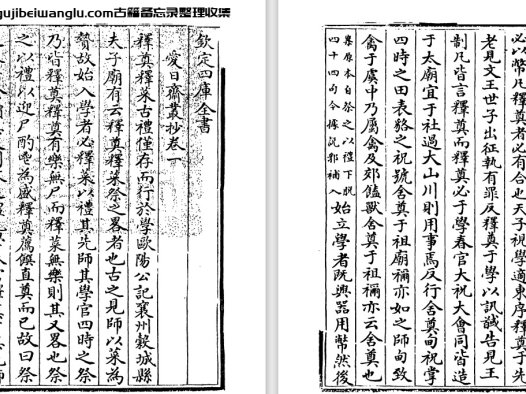 gujibeiwanglu.com古籍备忘录整理收集
欽定四庫全書
愛日齋叢抄卷一
釋奠釋菜古禮僅存而行於學歐陽公記襄州穀城縣
夫子廟有云釋奠釋菜祭之畧者也古之見師以菜為
贄故始入學者必釋菜以禮其先師其學官四時之祭
乃皆釋奠釋奠有樂無尸而釋菜無樂則其又畧也祭
之以禮以迎尸酌鬯為盛釋奠薦饌直奠而已故曰祭
必以幣凡釋奠者必有合也天子視學適東序釋奠于先
老見文王世子出征執有罪反釋奠于學以訊馘告見王
制凡皆言釋奠而釋奠必于學春官大祝大會同皆造
于太廟宜于社過大山川則用事焉反行舍奠甸祝掌
四時之田表貉之祝號舍奠于祖廟禰亦如之師甸致
禽于虞中乃屬禽及郊饁獸舍奠于祖禰亦云舍奠也
案原本自祭之以禮下脫
四十四句今據說郛補入
始立學者既興器用幣然後